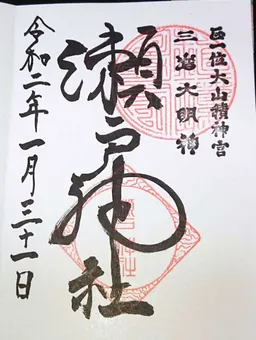 正一位大山積神宮
三嶋大明神
瀬戸神社
令和二年一月三十一日